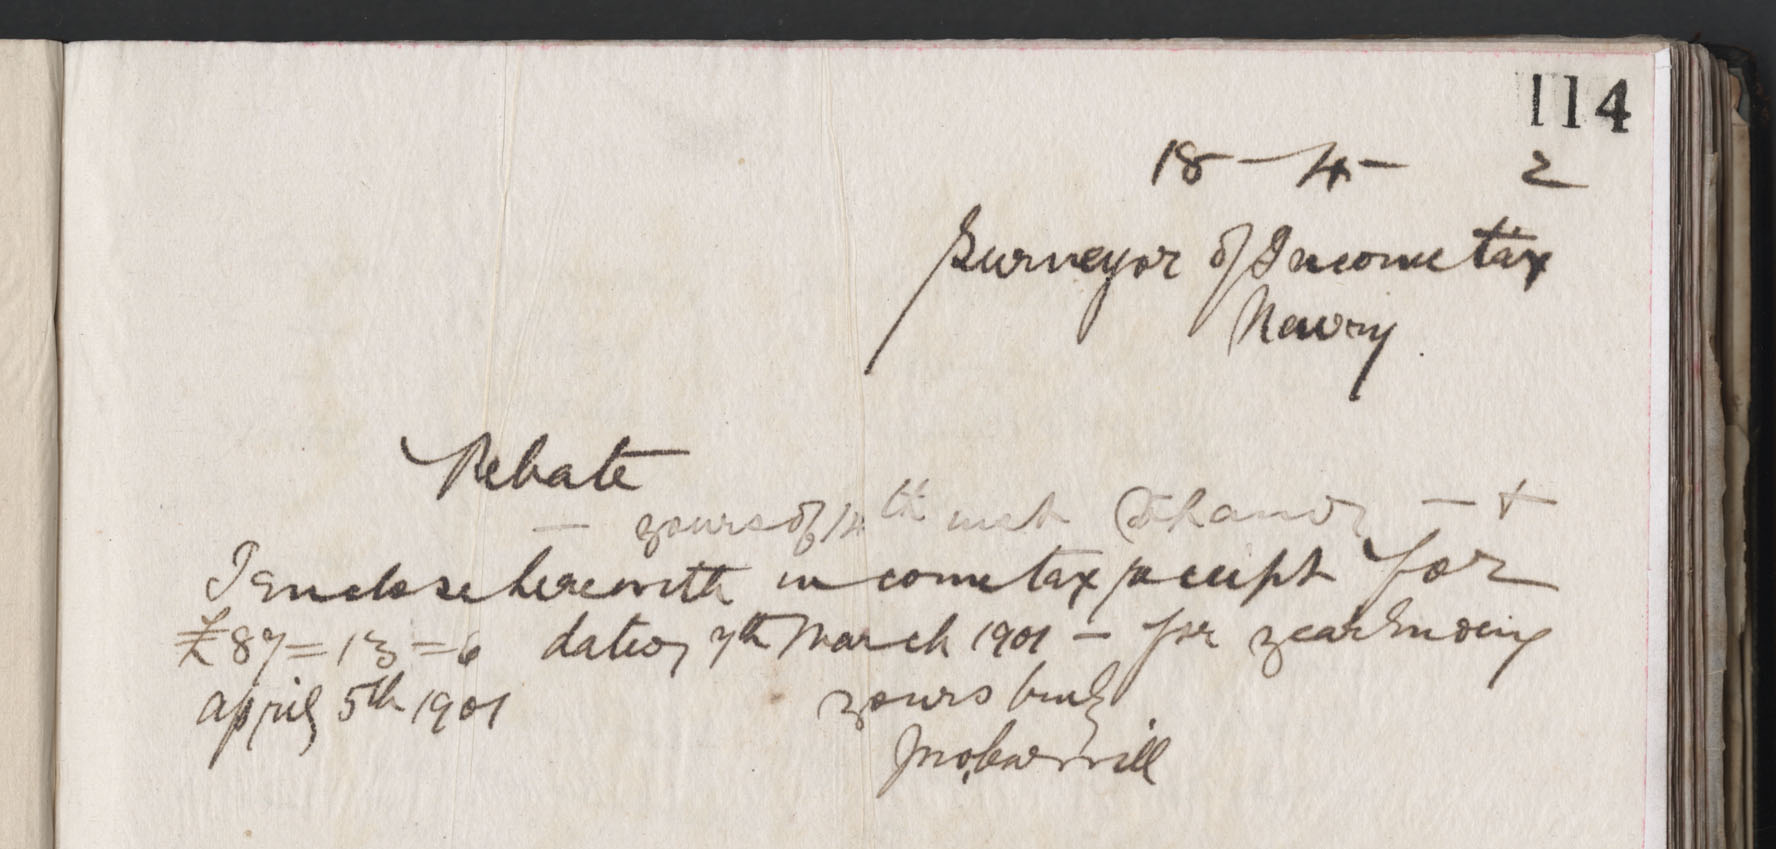 114
18-4- 2
Surveyor of Income tax
Newry.
Rebate
— yours of 14th inst to hand — +
I enclose herewith income tax receipt for
£87=13=6 dated 7th March 1901 - for year Ending
April 5th 1901 yours truly